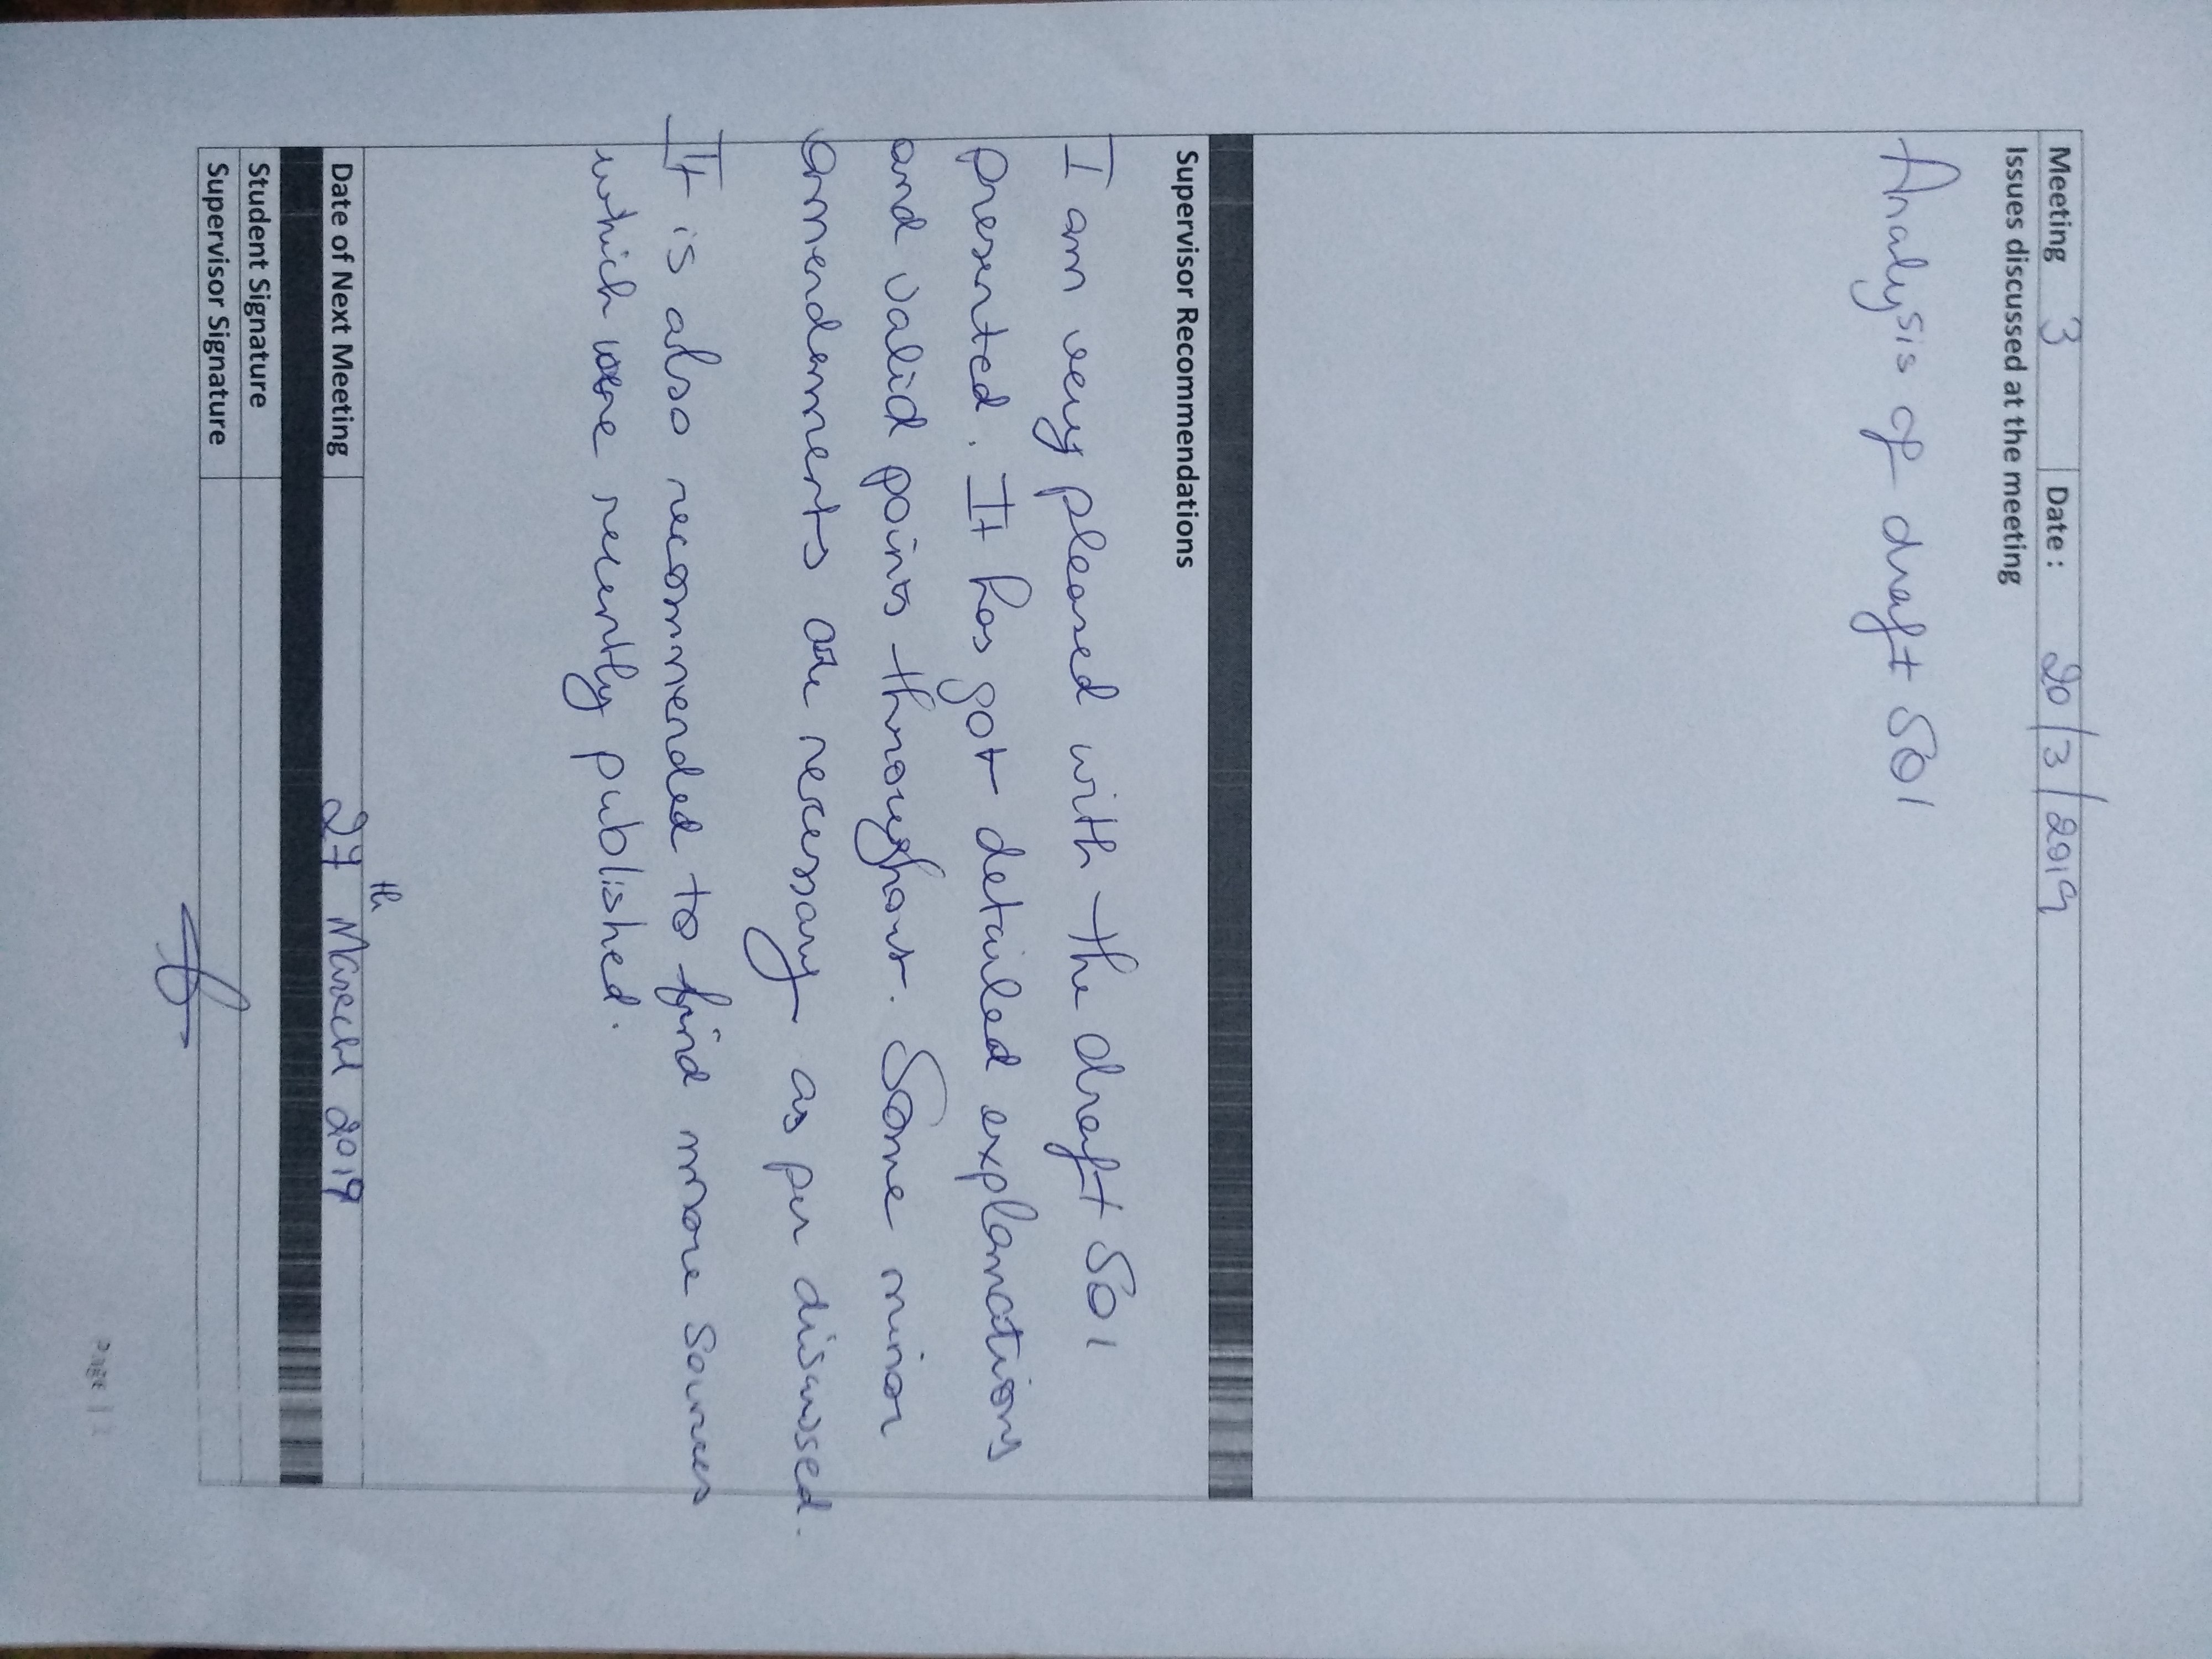 Meeting 3 Date: 20/3/2019
Issues discussed at the meeting
Analysis of draft SO1
Supervisor Recommendations
I am very pleased with the draft SO1
presented. It has got detailed explanations
and valid points throughout. Some minor
amendements are necessary as per discussed.
It is also recommended to find more sources
which were recently published.
Date of Next Meeting 27th March 2019
Student Signature
Supervisor Signature
Page |